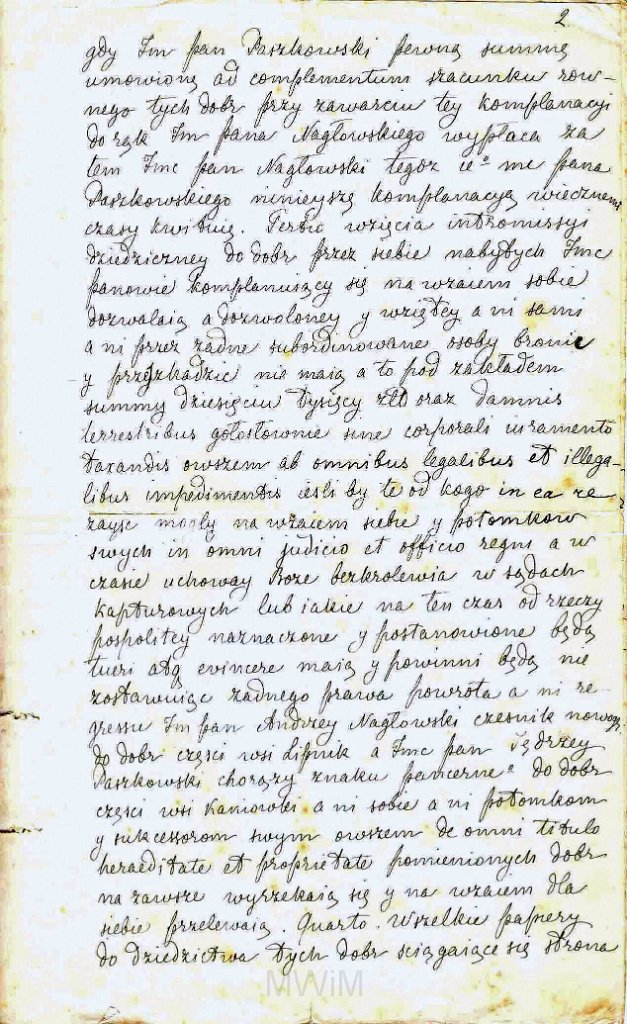 2
gdy Im pan Paszkowski pewną summę
umowioną ad complementum szacunku row-
nego tych dobr przy zawarciu tey komplanacyi
do rąk Im pana Nagłowskiego wypłaca za
tem Imc pan Nagłowski tegoż ieº mc pana
Paszkowskiego ninieyszą komplanacyą wiecznemi
czasy kwituię. Tertio wzięcia intromissyi
dziedziczney do dobr przez siebie nabytych Imc
panowie komplanuiący się na wzaiem sobie
dozwalaią a dozwoloney y wziętey a ni sami
a ni przez żadne subordinowane osoby bronić
y przeszkadzić nie maią a to pod zakładem
summy dziesięciu tysięcy złt oraz damnis
terrestribus gołosłownie sine corporali iuramento
taxandis owszem ab omnibus legalibus et illega-
libus impedimentis iesli by te od kogo in ea re
zayść mogły na wzaiem siebie y potomkow
swych in omni judicio et officio regni a w
czasie uchoway Boże bezkrolewia w sądach
kapturowych lub iakie na ten czas od rzeczy
pospolitey naznaczone y postanowione będą
tueri atq evincere maią y powinni będą nie
zostawuiąc żadnego prawa powrotu a ni re-
gressu Im pan Andrzey Nagłowski czesnik nowog.
do dobr części wsi Lipnik a Imc pan Jędrzey
Paszkowski chorąży znaku pancerneº do dobr
części wsi Kaniowki a ni sobie a ni potomkom
y sukcessorom swym owszem de omni titulo
heraeditate et proprietate pomienionych dobr
na zawsze wyrzekaią się y na wzaiem dla
siebie przelewaią. Quarto. Wszelkie papiery
do dziedzictwa tych dobr sciągaiące się strona
MWiM